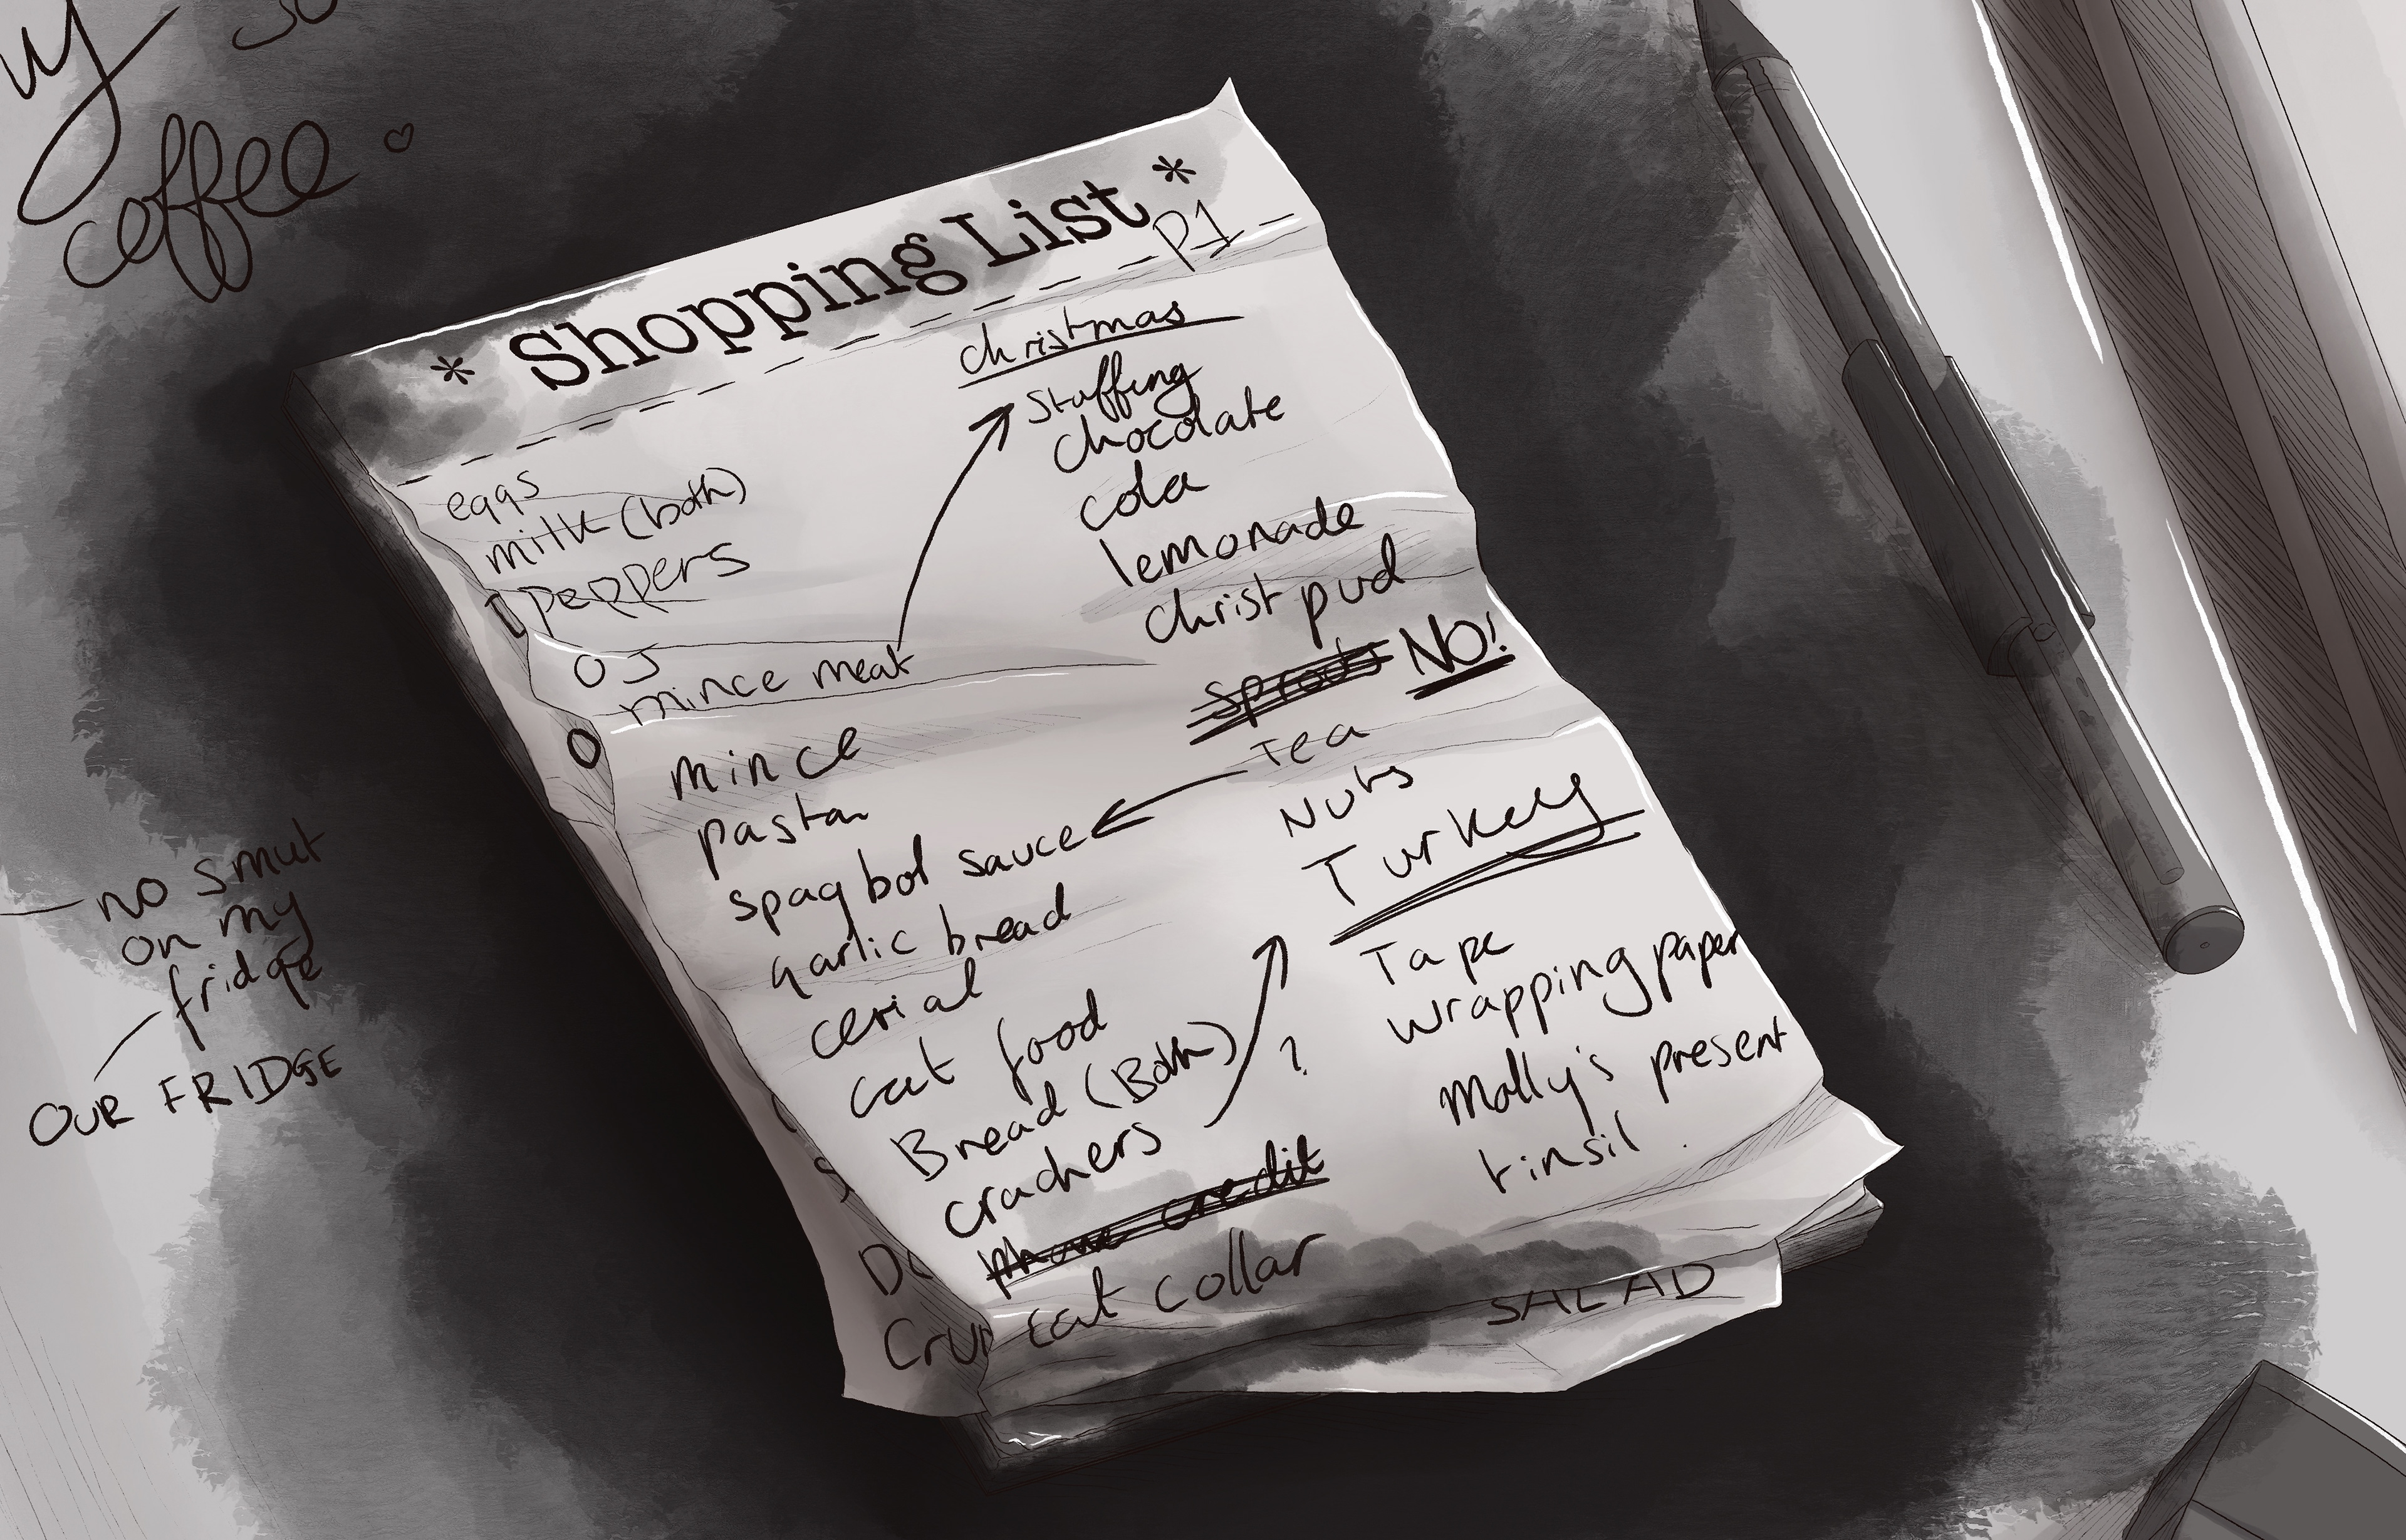 coffee
* Shopping List *
P1
eggs
milk (both)
peppers
O J
mince meat
mince
pasta
spag bol sauce
garlic bread
cerial
cat food
Bread (Both)
crackers
phone credit
cat collar
christmas
stuffing
chocolate
cola
lemonade
christ pud
sprouts NO!
Tea
Nuts
Turkey
Tape
wrapping paper
?
Molly's present
tinsil
SALAD
no smut
on my
fridge
OUR FRIDGE